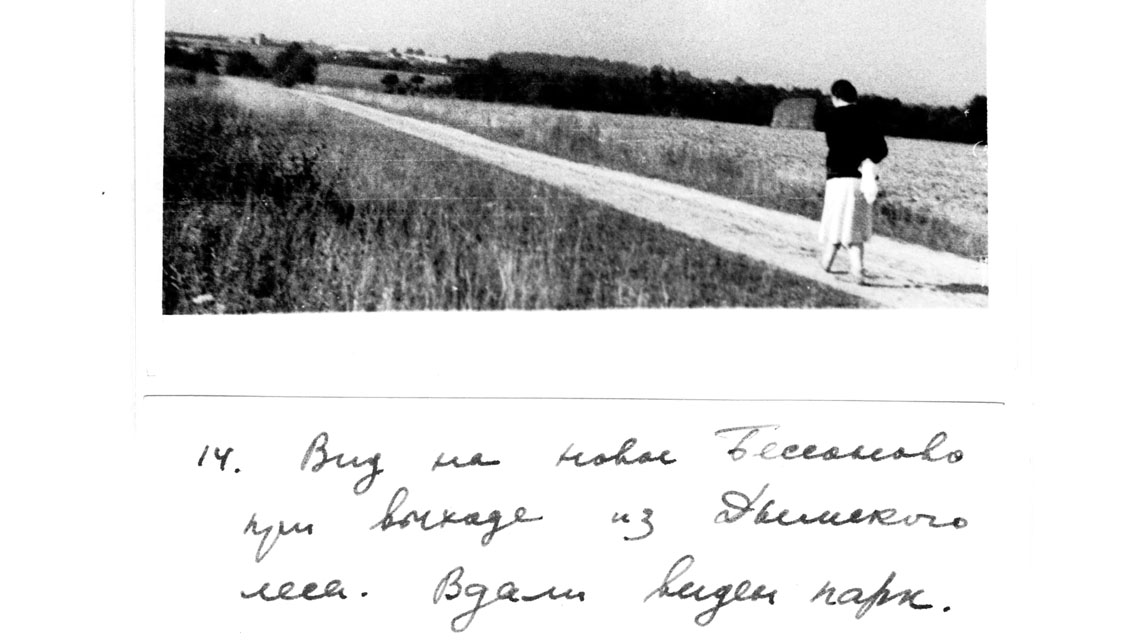 14. Вид на новое Бессоново
при выходе из Дымского
леса. Вдали виден парк.